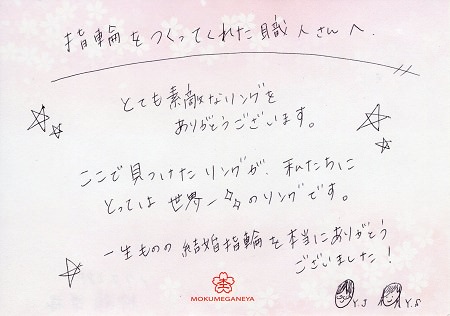 指輪をつくってくれた職人さんへ.
とても素敵なリングを
ありがとうございます。
ここで見つけたリングが、私たちに
とっては世界一のリングです。
一生ものの結婚指輪を本当にありがとう
ございました！
Y.S
Y.S
MOKUMEGANEYA